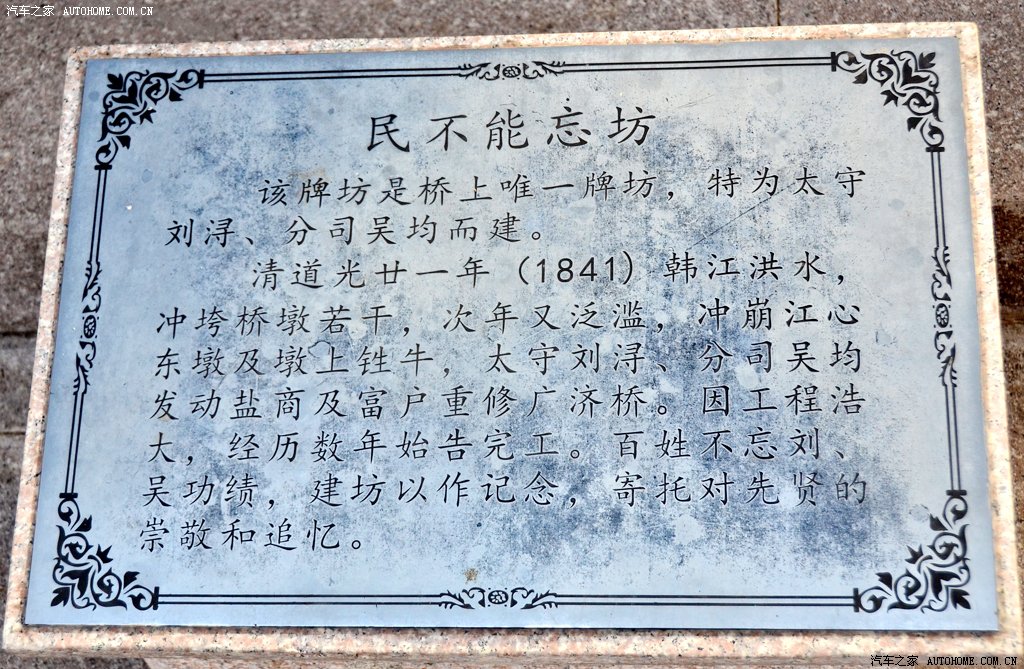 汽车之家 AUTOHOME.COM.CN
民不能忘坊
该牌坊是桥上唯一牌坊，特为太守
刘浔、分司吴均而建。
清道光廿一年（1841）韩江洪水，
冲垮桥墩若干，次年又泛滥，冲崩江心
东墩及墩上鉎牛，太守刘浔、分司吴均
发动盐商及富户重修广济桥。因工程浩
大，经历数年始告完工。百姓不忘刘、
吴功绩，建坊以作记念，寄托对先贤的
崇敬和追忆。
汽车之家 AUTOHOME.COM.CN